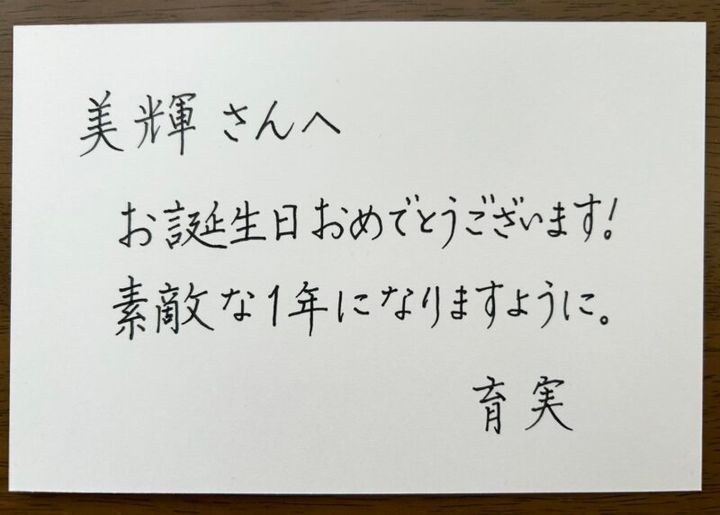 美輝さんへ
お誕生日おめでとうございます!
素敵な1年になりますように。
育実